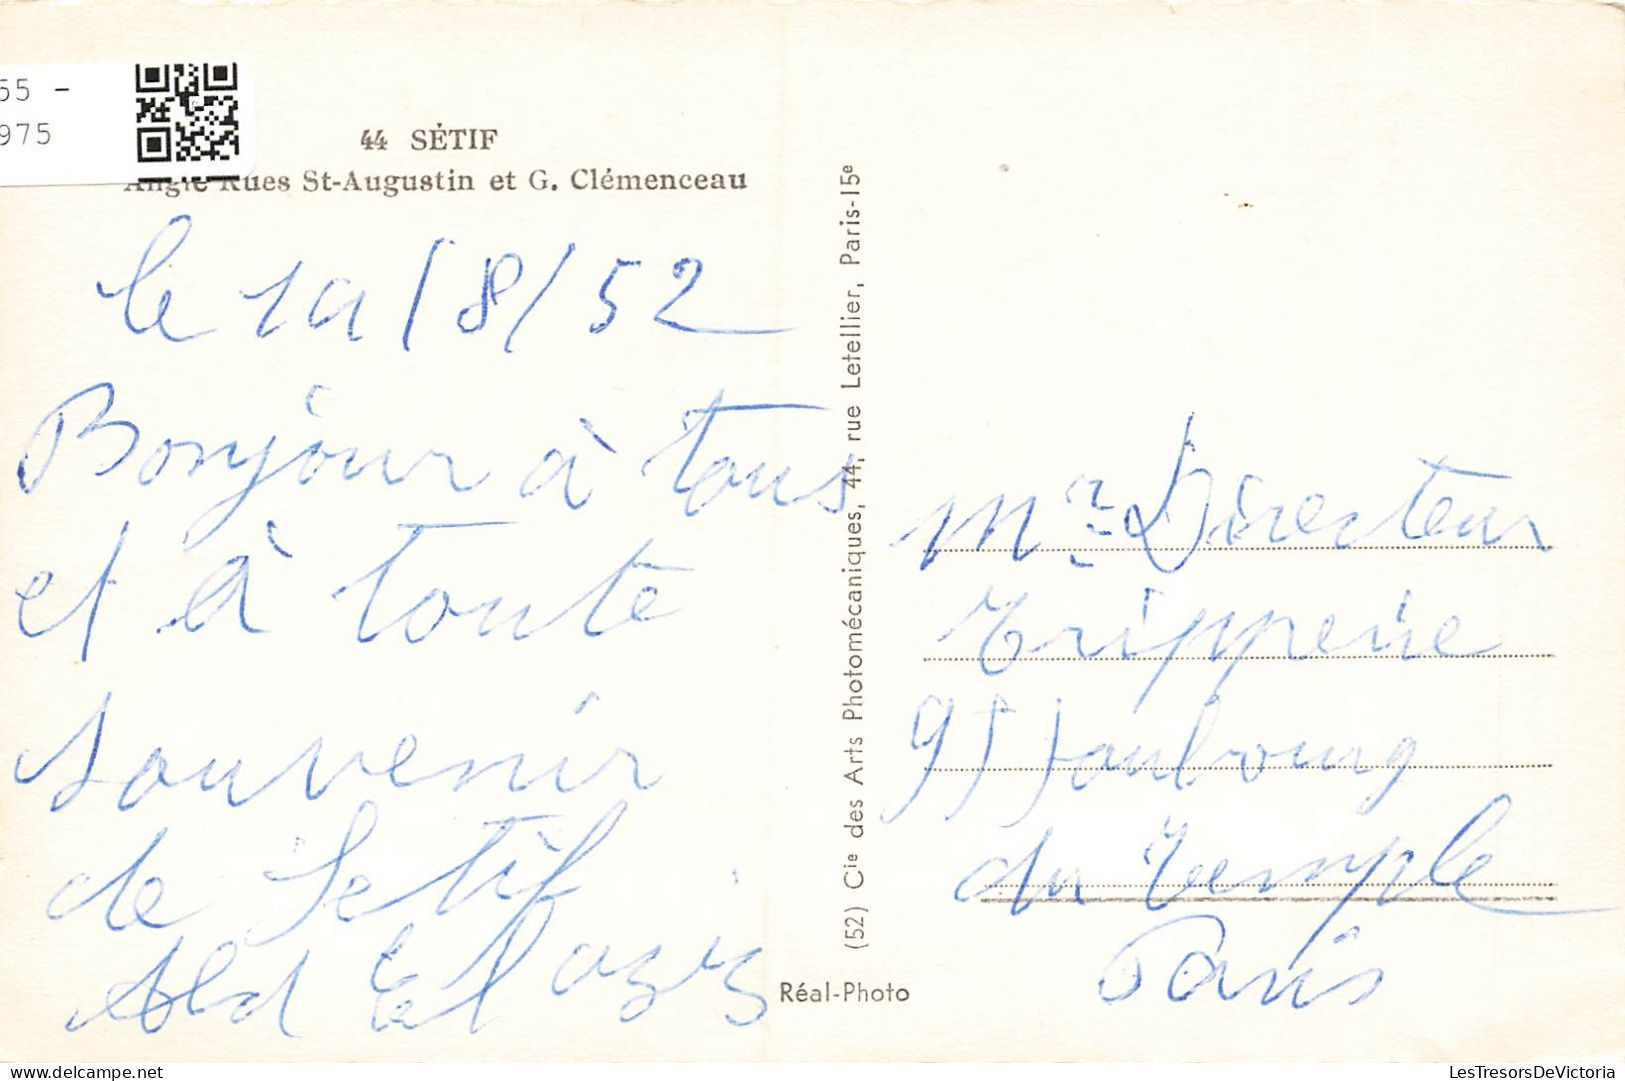 55 -
975
44 SÉTIF
Angle Rues St-Augustin et G. Clémenceau
le 10/8/52
Bonjour à tous
et à toute
souvenir
de Setif
Abd El aziz
(52) Cie des Arts Photomécaniques, 44, rue Letellier, Paris-15e
Réal-Photo
Mr Directeur
Tripperie
95 faubourg
du Temple
Paris
delcampe.net
LesTresorsDeVictoria